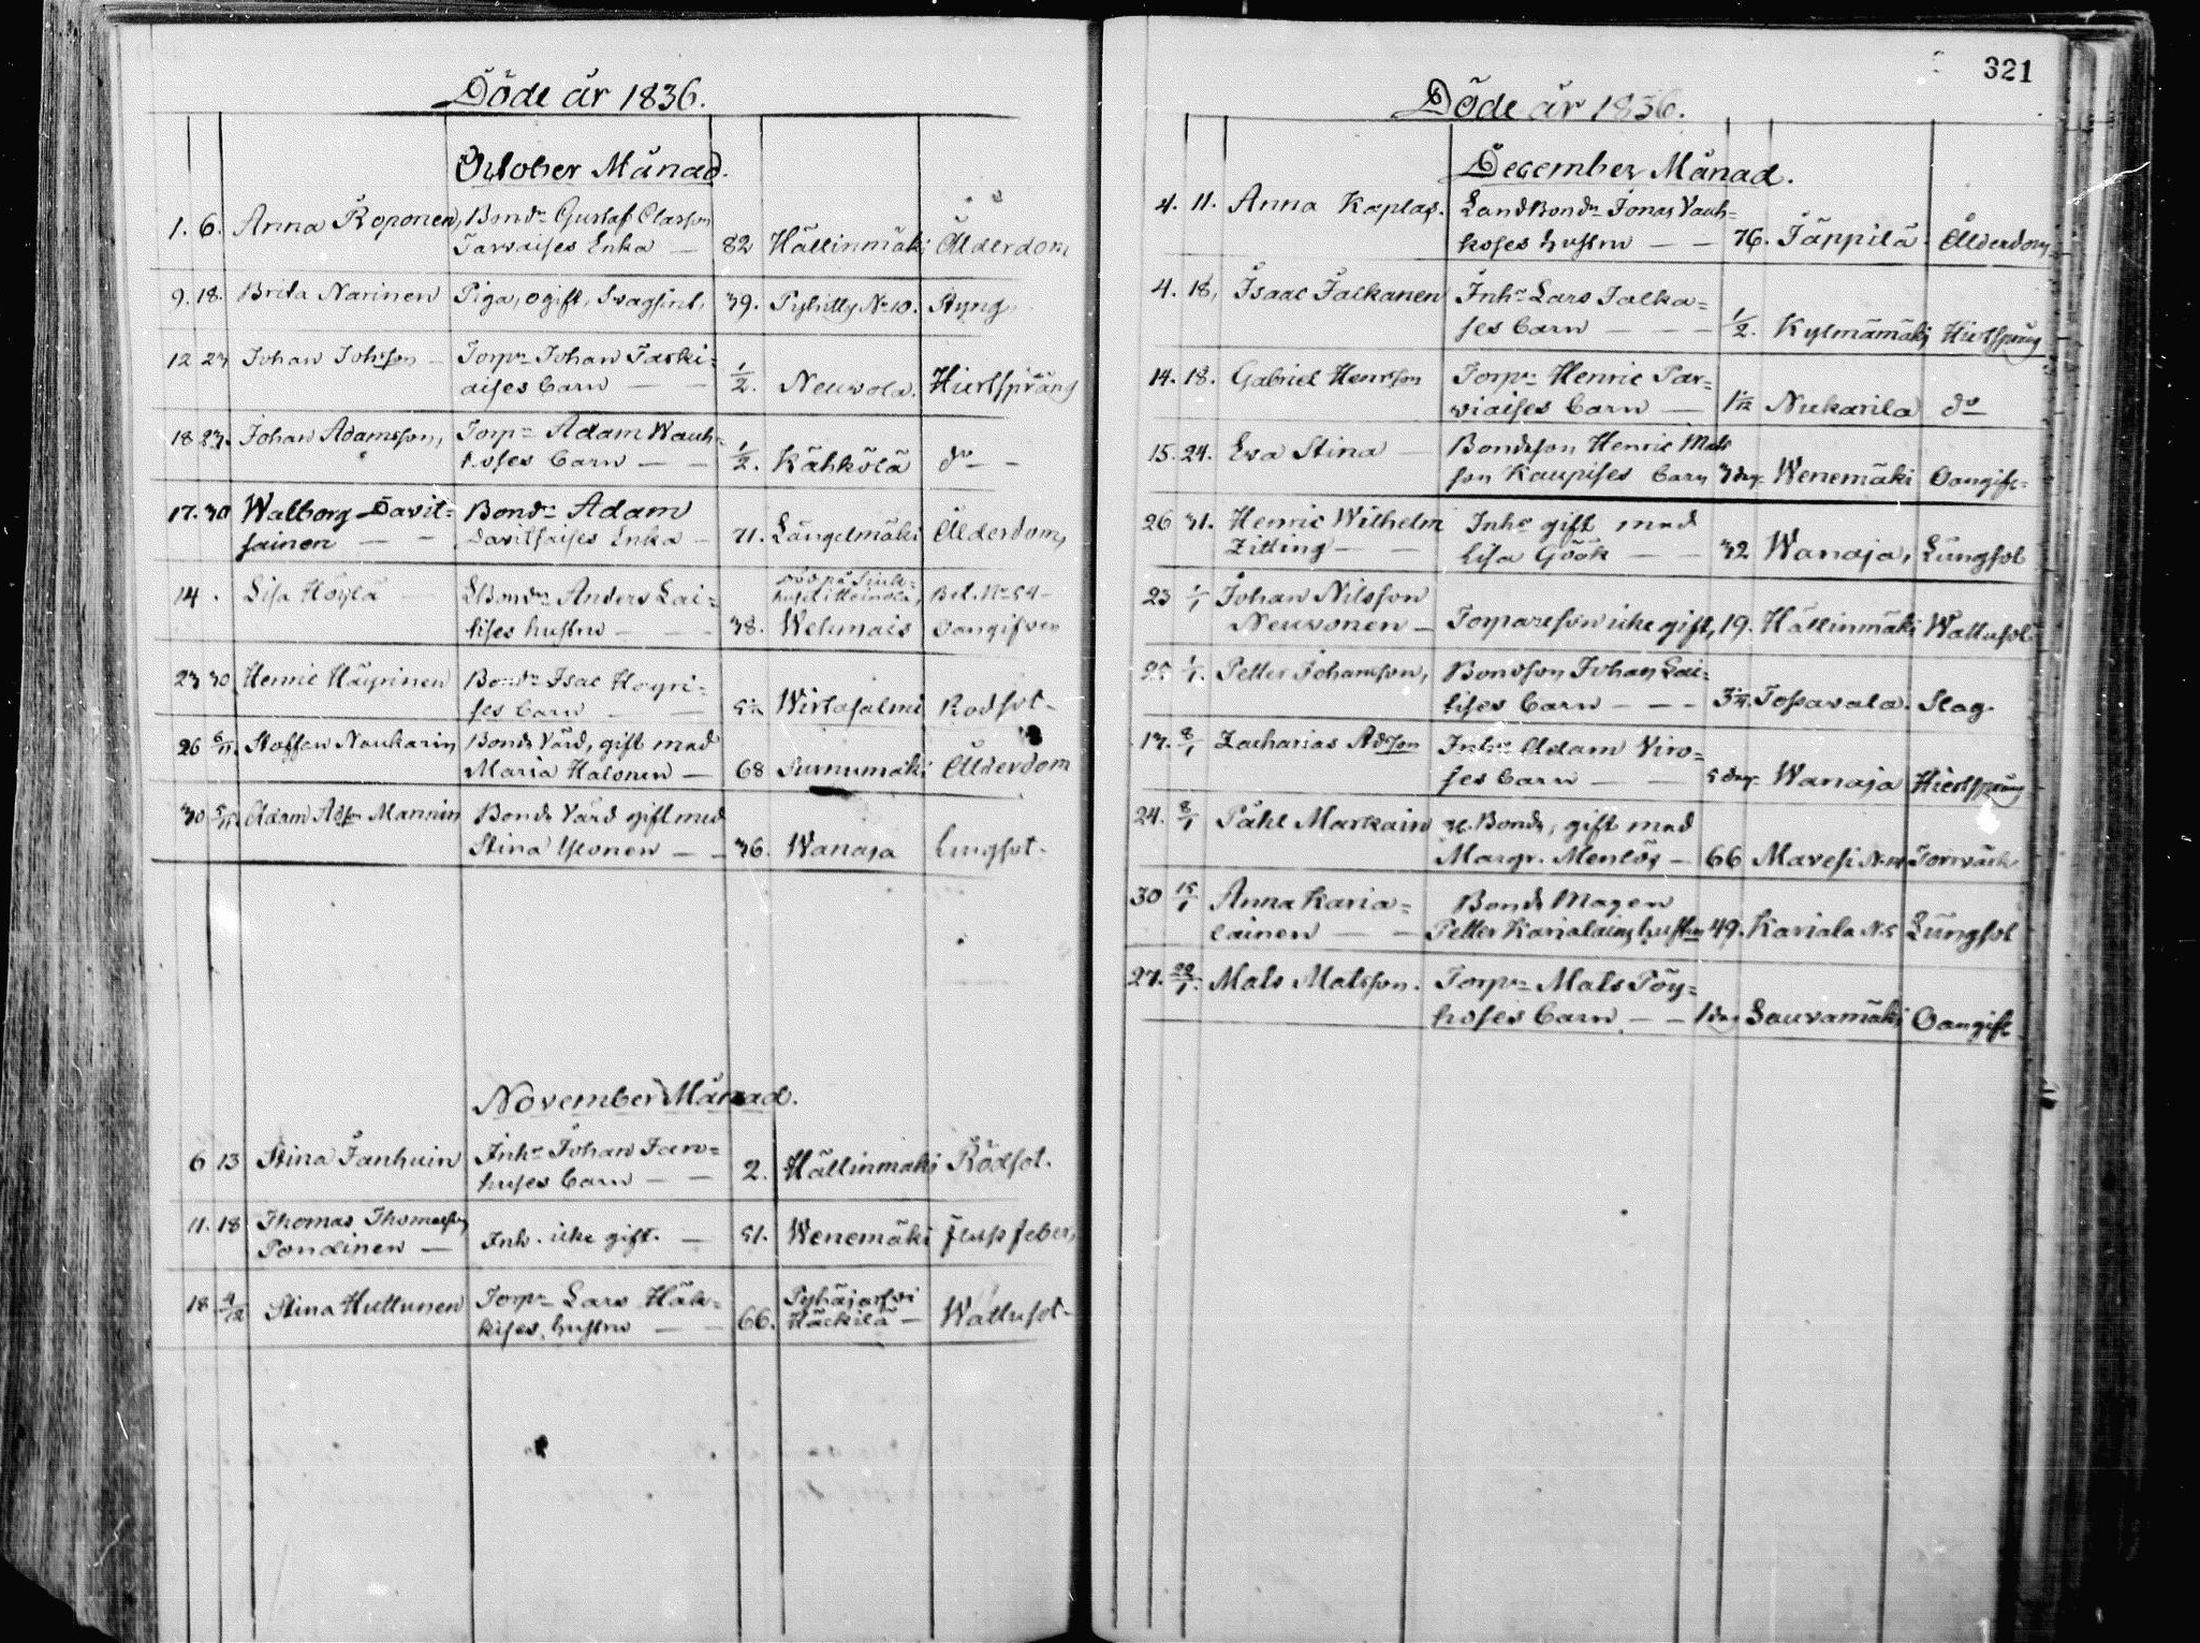 Döde år 1836.
October Månad.
1. 6. Anna Roponen, Bond: Gustaf Olasson
Tarvaises Enka — 82 Hällinmäki Ålderdom
9. 18. Brita Narinen Piga, ogift, svagsint, 39. Pyhitty No 10. Styng
12 23 Johan Johsson — Torp: Johan Taski=
aises Barn — — 1/2. Neuvola. Hiertspräng
18 23. Johan Adamsson, Torp= Adam Wauh=
koses Barn — — 1/2. Kähkölä do —
17. 30 Walborg Davit= Bond: Adam
sainen — — Davitsaises Enka — 71. Längelmäki Ålderdom,
14 . Lisa Höylä — LBond: Anders Lai= Bel. No 54
tises hustru — — 38. Wehmais Oangifven
23 30 Henric Häyrinen Bond: Isac Häyri=
ses Barn — — Wirtasalmi Rödsot.
26 6/11. Staffan Naukarin Bonde Värd, gift med
Maria Halonen — 68 Surnumäki Ålderdom
30 Adam Adsson Mannin Bonde Värd gift med
Stina Ylönen — — 36. Wanaja Lungsot.
November Månad.
6 13 Stina Janhuin Inh: Johan Jan=
huses Barn — — 2. Hällinmäki Rödsot.
11. 18 Thomas Thomasson
Pondinen — Inh. icke gift. — 51. Wenemäki feber,
18 4/12 Stina Huttunen Torp= Lars Häk= Pyhäjärvi
kises hustru — — 66. Häckilä — Wattusot.
321
Döde år 1836.
December Månad.
4. 11. Anna Kaplas. LandBond: Jonas Vauh=
koses hustru — — 76. Jäppilä. Ålderdom
4. 18, Isaac Jalkanen Inh: Lars Jalka=
ses Barn — — — 1/2. Kylmämäki Hiertspräng
14. 18. Gabriel Henrsson Torp= Henric Par=
viaises Barn — 1 1/12 Nukarila do
15. 24. Ewa Stina — Bondeson Henric Mats
son Kaupises Barn 3 dag. Wenemäki Oangift=
26 31. Henric Wilhelm Inh: gift med
Zitting — — Lisa Göök — — 32 Wanaja, Lungsot
23 1/1 Johan Nilsson
Neuvonen — Torpareson icke gift, 19. Hällinmäki Wattusot
25 1/1. Petter Johansson, Bondson Johan Lai=
tises Barn — — — Tossavala. Slag.
17. 8/1 Zacharias Adsson Inh: Adam Viro=
ses Barn — — 5 dag. Wanaja Hiertspräng
24. 8/1 Påhl Markain Bonde, gift med
Margr. Menlös — 66 Mavesi No 14
30 15/1 Anna Karia= Bonde Magen
lainen — — Petter Karialains hustru 49. Kariala No 5 Lungsot
27. 22/1. Mats Matsson. Torp= Mats Pöy=
höses Barn — — 1 dag Sauvamäki Oangift